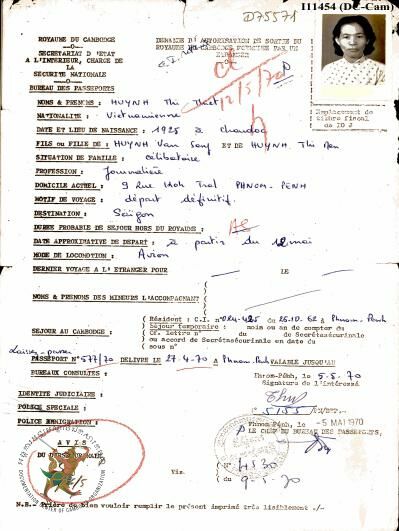 I11454 (DC-Cam)
D75571
ROYAUME DU CAMBODGE
SECRETARIAT D'ETAT
A L'INTERIEUR, CHARGE DE
LA
SECURITE NATIONALE
BUREAU DES PASSEPORTS
DEMANDE D'AUTORISATION DE SORTIE DU
ROYAUME DU CAMBODGE FORMULEE PAR UN
ETRANGER
2/5/70
Emplacement de
timbre fiscal
de 20 J
NOMS & PRENOMS : HUYNH Thi Thiet
NATIONALITE : Vietnamienne
DATE ET LIEU DE NAISSANCE : 1925 à chaudoc
FILS ou FILLE DE : HUYNH Van Song ET DE HUYNH Thi Men
SITUATION DE FAMILLE : célibataire
PROFESSION : Journalière
DOMICILE ACTUEL : 9 Rue Moh Tral PHNOM-PENH
MOTIF DE VOYAGE : départ définitif.
DESTINATION : Saïgon
DUREE PROBABLE DE SEJOUR HORS DU ROYAUME :
DATE APPROXIMATIVE DE DEPART : à partir du 12 mai
MODE DE LOCOMOTION : Avion
DERNIER VOYAGE A L'ETRANGER POUR LE
NOMS & PRENOMS DES MINEURS L'ACCOMPAGNANT
SEJOUR AU CAMBODGE :
(Résident : C.I. n° 024.425 du 26.10.62 à Phnom-Penh
(Séjour temporaire : mois ou an de compter du
(Cf. lettre n° du de Secrétasécurinale
(ou accord de Secrétasécurinale en date du
(sous n°
Laissez-passer
PASSEPORT N° 577/70 DELIVRE LE 27-4-70 A Phnom-Penh VALABLE JUSQU'AU
BUREAUX CONSULTES :
Phnom-Pénh, le 5-5-70
Signature de l'intéressé
IDENTITE JUDICIAIRE :
POLICE SPECIALE :
POLICE IMMIGRATION :
N° 5155
Phnom-Pénh, le 5 MAI 1970
LE CHEF DU BUREAU DES PASSEPORTS,
AVIS
DOCUMENTATION CENTER OF CAMBODIA
Visa
(N° 4530
(du 9-5-70
N.B.- Prière de bien vouloir remplir le présent imprimé très lisiblement ./-